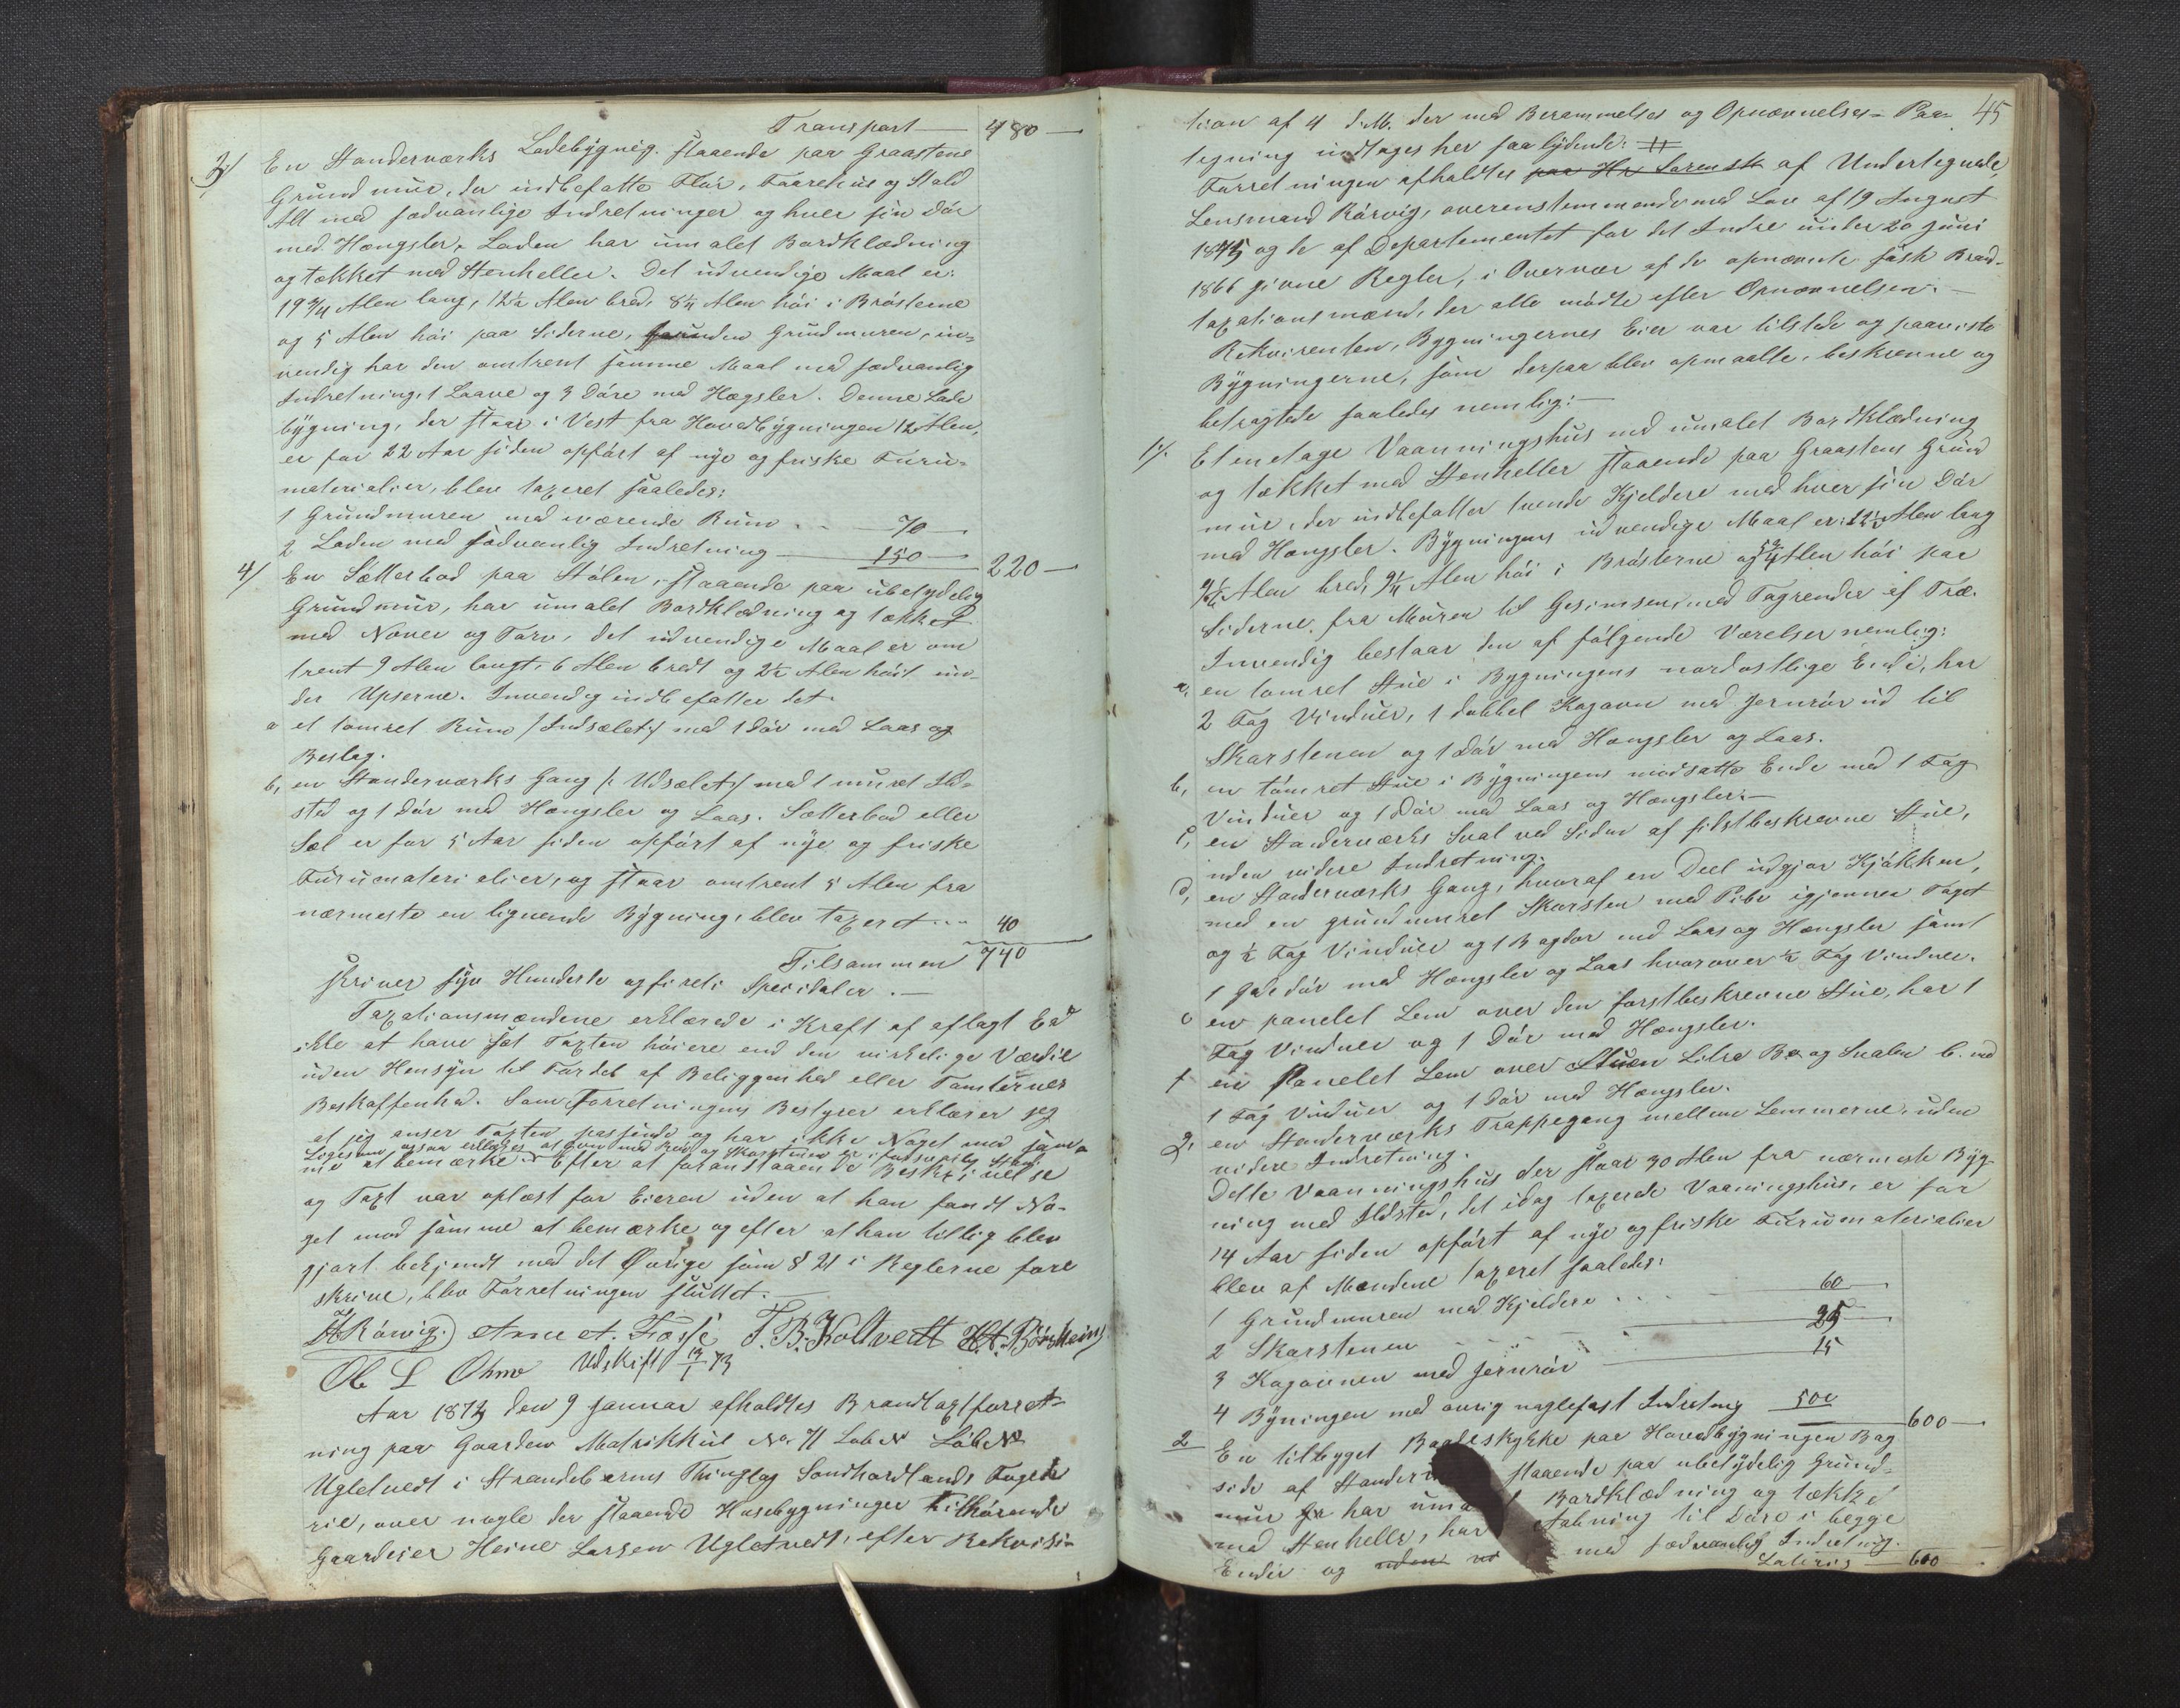 Transport — 480 —
3/ En Standerværks Ladebygnig. staaende paa Graastens
Grundmur, der indbefatte Flór, Faarehus og Stald
Alt med sædvanlige Indretninger og hver sin Dór
med Hængsler. Laden har umalet Bordklædning
og tækket med Stenheller. Det udvendige Maal er:
19 3/4 Alen lang, 12 1/2 Alen bred, 8 1/4 Alen hói i Brósterne
og 5 Alen hói paa Siderne, foruden Grundmuren, in-
vendig har den omtrent samme Maal med sædvanlig
Indretning, 1 Laave og 3 Dóre med Hægsler. Denne Lade
bygning, der staar i Vest fra Hovedbygningen 12 Alen,
er for 22 Aar siden opfórt af nye og friske Furu-
materialier, blev taxeret saaledes:
1 Grundmuren med værende Rum . . . — 70 —
2 Laden med sædvanlig Indretning — 150 — 220 —
4/ En Sætterbod paa Stólen, staaende paa ubetydelig
Grundmur, har umalet Bordklædning og tækket
med Næver og Torv, det udvendige Maal er om
trent 9 Alen langt, 6 Alen bredt og 2 1/2 Alen hóit un-
der Upserne. Invendig indbefatter det:
a et tómret Rum /: Indsælet :/ med 1 Dór med Laas og
Beslag.
b, en Standerværks Gang /: Udsælet :/ med 1 muret Ild-
sted og 1 Dór med Hængsler og Laas. Sætterbod eller
Sæl er for 5 Aar siden opfórt af nye og friske
Furumaterialier, og staar omtrent 5 Alen fra
nærmeste en lignende Bygning, blev taxeret . . . 40
Tilsammen 740
skriver syv Hundrede og firti Specidaler. —
Taxationsmændene erklærede i Kraft af aflagt Ed
ikke at have sat Taxten hóiere end den virkelige Værdie
uden Hensyn til Fordel af Beliggenhed eller Tomternes
Beskaffenhed. Som Forretningens Bestyrer erklærer jeg
at jeg anser Taxten passende og har ikke Noget mod sam-
Ligesom ogsaa erklæres at Ovn med Rór og Skorsten er i forsvarlig Stand
me at bemærke. Efter at foranstaaende Beskrivelse
og Taxt var oplæst for Eieren uden at han fandt No-
get mod samme at bemærke og efter at han tillig blev
gjort bekjendt med det Øvrige som § 21 i Reglerne fore
skrive, blev Forretningen sluttet. —
H Rórvig. Arne A. Fosse T. B. Koltvedt H. A. Bórsheim
Ole L Ohmo Udskift 13/1 73
Aar 1873 den 9 Januar afholdtes Brandtaxtforret-
ning paa Gaarden Matrikkul No. 71 Lób No
Ugletvedt i Strandebarms Thinglag Sóndhordlands Fogede
rie, over nogle der staaende Husebygninger Tilhórende
Gaardeier Heine Larsen Ugletvedt, efter Rekvisi-
45
tion af 4 d. M. der med Berammelses og Opnævnelses- Paa-
tegning indtages her saalydende:
Forretningen afholdtes paa Hr Sorensk af Undertegnede
Lensmand Rórvig, overenstemmende med Lov af 19 August
1845 og de af Departementet for det Indre under 20 Juni
1866 givne Regler, i Overvær af de opnævnte faste Brand-
taxationsmænd, der alle módte efter Opnævnelsen. —
Rekvirenten, Bygningernes Eier var tilstede og paaviste
Bygningerne, som derpaa blev opmaalte, beskrevne og
betragtede saaledes nemlig: —
1/. Et en etage Vaanningshus med umalet Bordklædning
og tækket med Stenheller staaende paa Graastens Grund
mur, der indbefatter tvende Kjeldere med hver sin Dór
med Hængsler. Bygningens udvendige Maal er: 12 1/2 Alen lang
9 1/4 Alen bred, 9 1/4 Alen hói i Brósterne og 5 3/4 Alen hói paa
Siderne, fra Muren til Gesimsen, med Tagrender af Træ.
Invendig bestaar den af fólgende Værelser nemlig:
a, en tómret Stue i Bygningens nordostlige Ende, har
2 Fag Vinduer, 1 dobbel Kogovn med Jernrór ud til
Skorstenen og 1 Dór med Hængsler og Laas.
b, en tómret Stue i Bygningens modsatte Ende med 1 Fag
Vinduer og 1 Dór med Laas og Hængsler. —
c, en Standerværks Sval ved Siden af sidstbeskrevne Stue,
uden videre Indretning.
d, en Standerværks Gang, hvoraf en Deel udgjór Kjókken,
med en grundmuret Skorsten med Pibe igjennem Taget
og 1/2 Fag Vinduer og 1 Bagdór med Laas og Hængsler samt
1 Gadedór med Hængsler og Laas hvorover 1/2 Fag Vinduer.
e en panelet Lem over den forstbeskrevne Stue, har 1
Fag Vinduer og 1 Dór med Hængsler.
f en Panelet Lem over Stuen Litra B og Svalen C. med
1 Fag Vinduer og 1 Dór med Hængsler.
g, en Standerværks Trappegang mellem Lemmerne, uden
videre Indretning.
Dette Vaanningshus der staar 30 Alen fra nærmeste Byg
ning med Ildsted, det idag taxerede Vaaningshus, er for
14 Aar siden opfórt af nye og friske Furumaterialier
blev af Mændene taxeret saaledes:
1 Grundmuren med Kjeldere . . . . 60 —
2 Skorstenen — 25 —
3 Kogovnen med Jernrór — 15
4 Bygningen med óvrig naglefast Indretning 500 — 600 —
2 En tilbygget Bordeskykke paa Hovedbygningen Bag
side af Stander staaende paa ubetydelig Grund-
mur har uma Bordklædning og tækket
med Stenheller, har Aabning til Dóre i begge
Ender og uden med sædvanlig Indretnig.
Lateris — 600